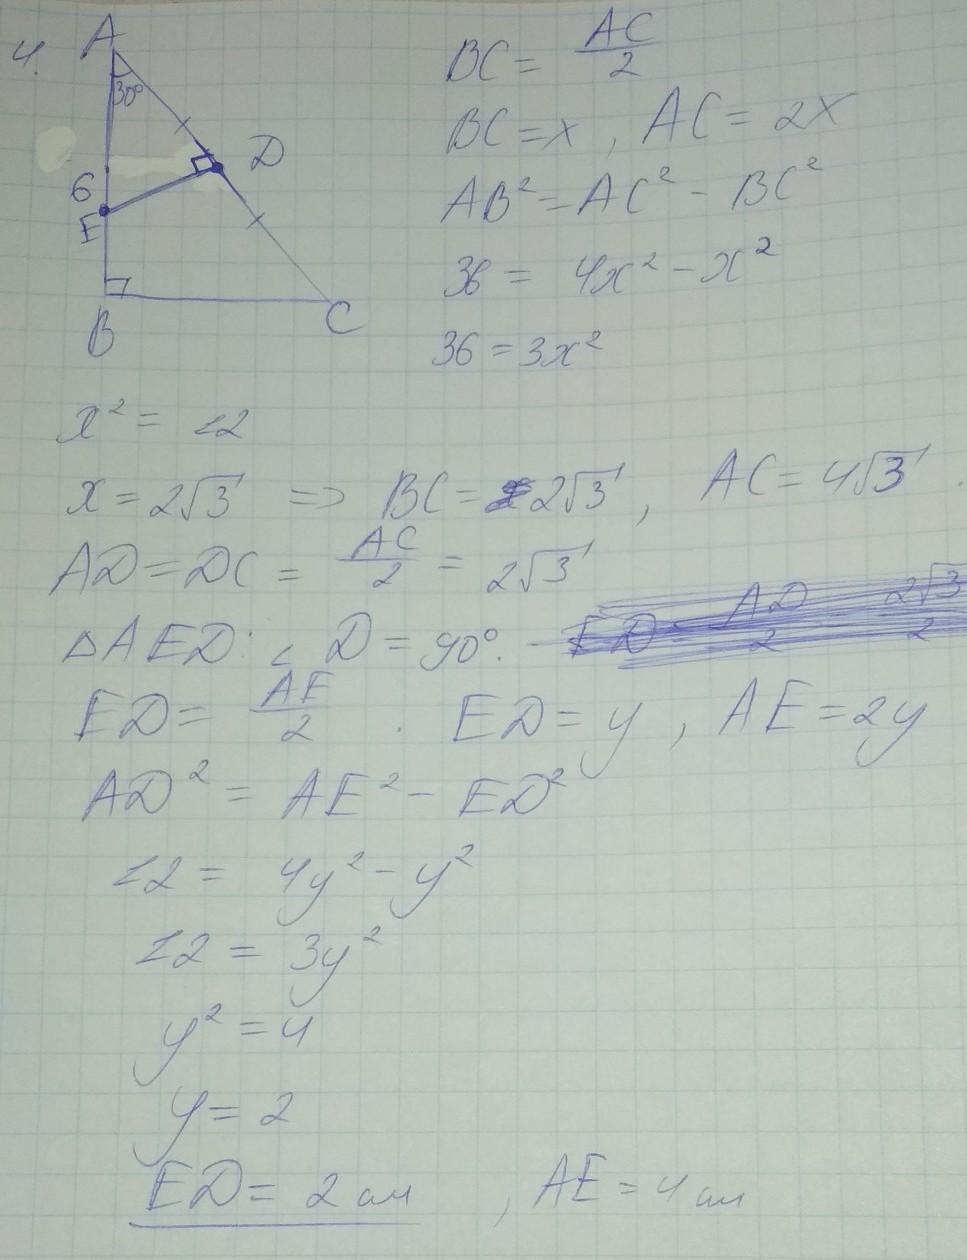 4.
A
30°
D
6
E
B
C
BC = AC/2
BC = x , AC = 2x
AB² = AC² - BC²
36 = 4x² - x²
36 = 3x²
x² = 12
x = 2√3 => BC = 2√3 , AC = 4√3 .
AD = DC = AC/2 = 2√3
△AED: ∠D = 90°. ED = AD/2 2√3/2
ED = AE/2 . ED = y , AE = 2y
AD² = AE² - ED²
12 = 4y² - y²
12 = 3y²
y² = 4
y = 2
ED = 2 см , AE = 4 см